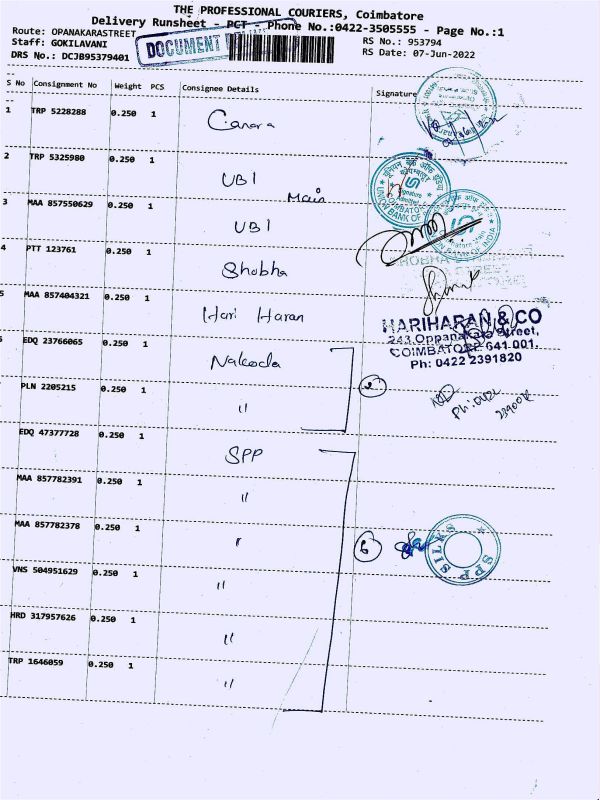 THE PROFESSIONAL COURIERS, Coimbatore
Delivery Runsheet - PCT - Phone No.:0422-3505555 - Page No.:1
Route: OPANAKARASTREET
Staff: GOKILAVANI
DRS No.: DCJB95379401
DOCUMENT
RS No.: 953794
RS Date: 07-Jun-2022
S No Consignment No Weight PCS Consignee Details Signature
1 TRP 5228288 0.250 1 Canara
2 TRP 5325980 0.250 1 UBI Main
3 MAA 857550629 0.250 1 UBI
4 PTT 123761 0.250 1 Shobha
5 MAA 857404321 0.250 1 Hari Haran
HARIHARAN & CO
243, Oppanakara Street,
COIMBATORE 641 001.
Ph: 0422 2391820
EDQ 23766065 0.250 1 Nakoda
PLN 2205215 0.250 1 "
EDQ 47377728 0.250 1 SPP
MAA 857782391 0.250 1 "
MAA 857782378 0.250 1 "
6
SPP SILKS
VNS 504951629 0.250 1 "
HRD 317957626 0.250 1 "
TRP 1646059 0.250 1 "